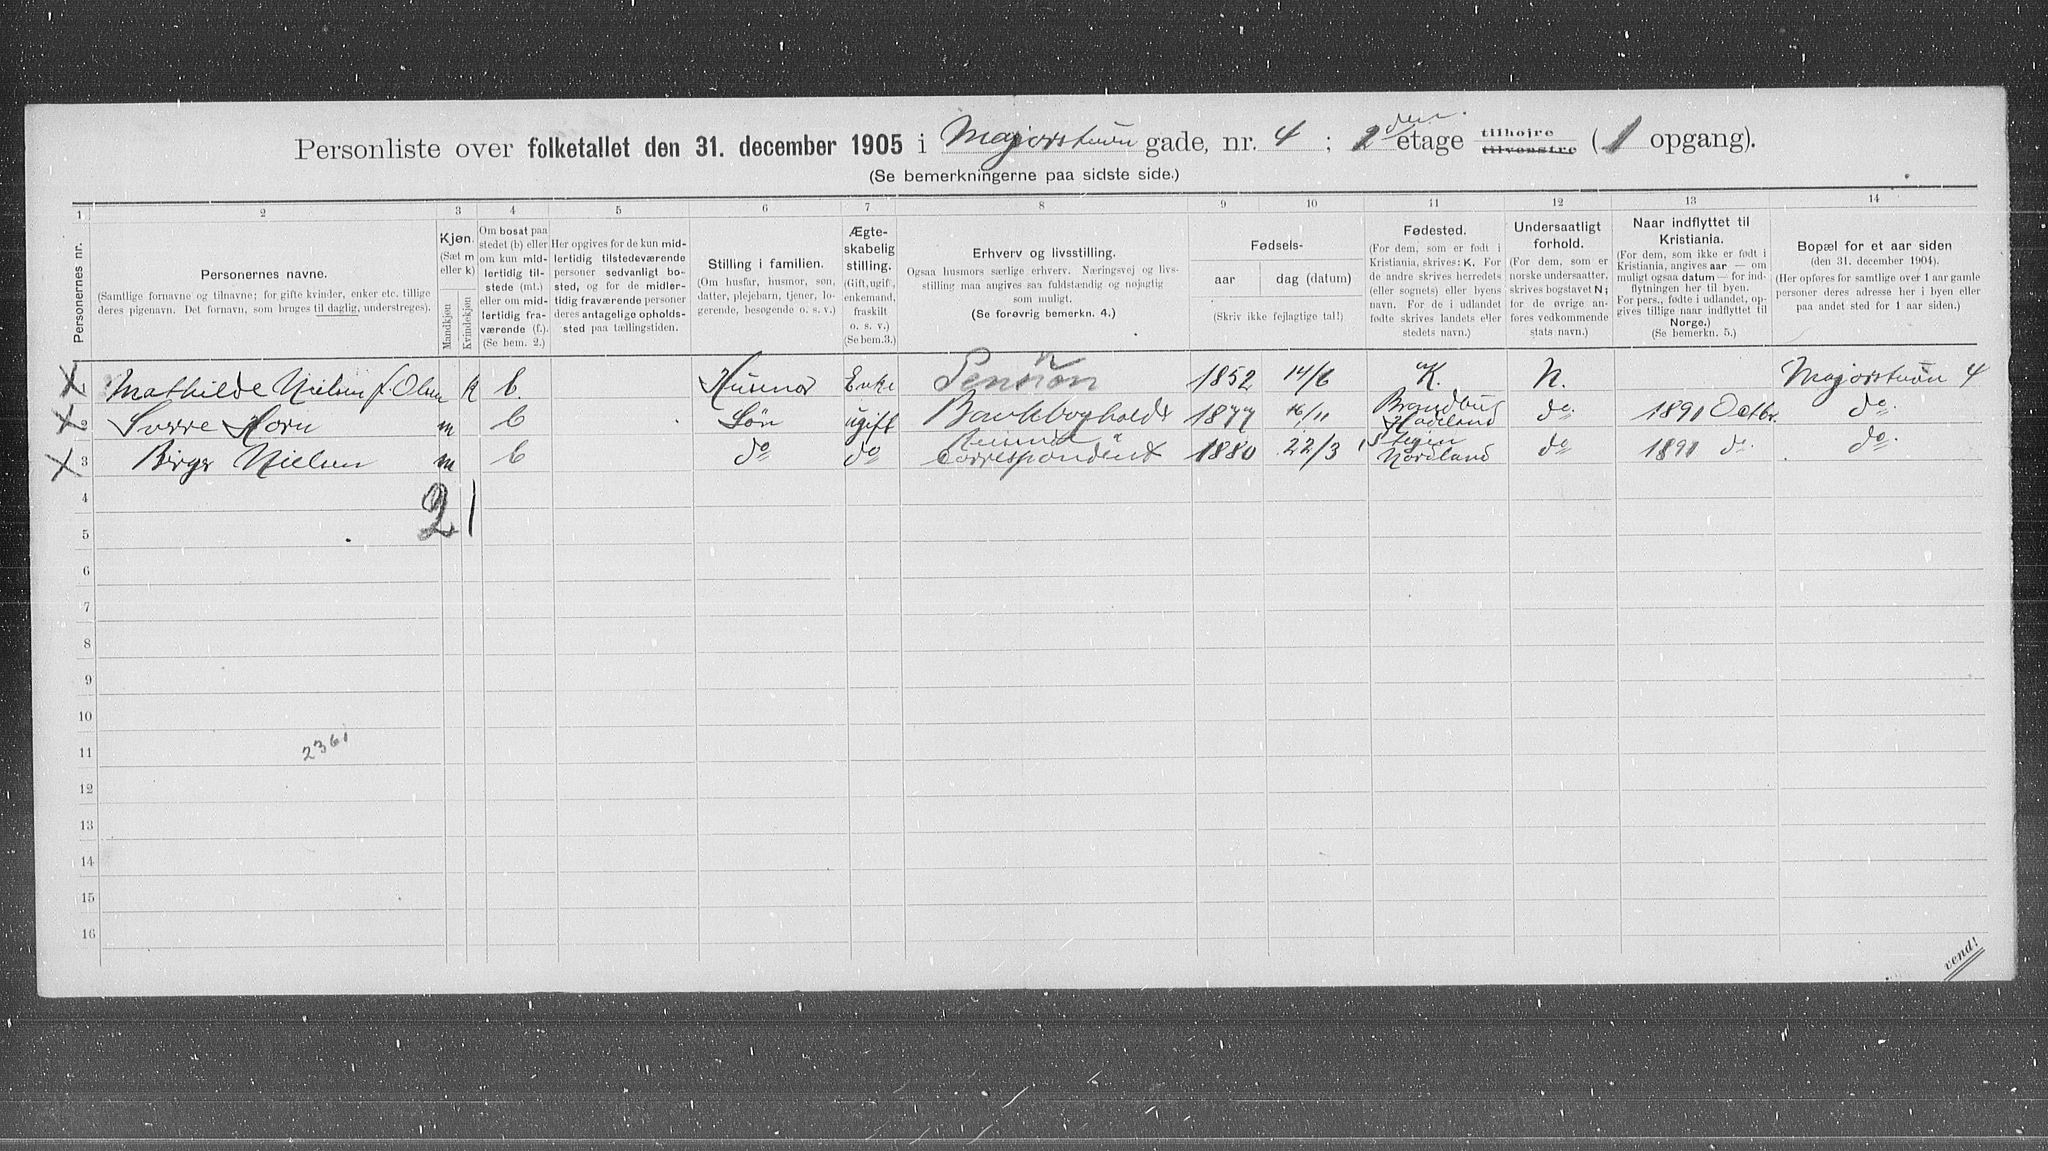 Personliste over folketallet den 31. december 1905 i Majorstuen gade, nr. 4 ; 2 den etage tilhøjre tilvenstre ( 1 opgang).
(Se bemerkningerne paa sidste side.)
1 2 3 4 5 6 7 8 9 10 11 12 13 14
Personernes nr.
Personernes navne.
(Samtlige fornavne og tilnavne; for gifte kvinder, enker etc. tillige
deres pigenavn. Det fornavn, som bruges til daglig, understreges).
Kjøn.
(Sæt m
eller k)
Mandkjøn
Kvindekjøn
Om bosat paa
stedet (b) eller
om kun mid-
lertidig til-
stede (mt.)
eller om mid-
lertidig fra-
værende (f.).
(Se bem. 2.)
Her opgives for de kun mid-
lertidig tilstedeværende
personer sedvanligt bo-
sted, og for de midler-
tidig fraværende personer
deres antagelige opholds-
sted paa tællingstiden.
Stilling i familien.
(Om husfar, husmor, søn,
datter, plejebarn, tjener, lo-
gerende, besøgende o. s. v.)
Ægte-
skabelig
stilling.
(Gift, ugift,
enkemand,
fraskilt
o. s. v.)
(Se bem.3.)
Erhverv og livsstilling.
Ogsaa husmors særlige erhverv. Næringsvej og livs-
stilling maa angives saa fuldstændig og nøjagtig
som muligt.
(Se forøvrig bemerkn. 4.)
Fødsels-
aar dag (datum)
(Skriv ikke fejlagtige tal!)
Fødested.
(For dem, som er født i
Kristiania, skrives: K. For
de andre skrives herredets
(eller sognets) eller byens
navn. For de i udlandet
fødte skrives landets eller
stedets navn.)
Undersaatligt
forhold.
(For dem, som er
norske undersaatter,
skrives bogstavet N;
for de øvrige an-
føres vedkommende
stats navn.)
Naar indflyttet til
Kristiania.
(For dem, som ikke er født i
Kristiania, angives aar — om
muligt ogsaa datum — for ind-
flytningen her til byen.
For pers., fødte i udlandet, op-
gives tillige naar indflyttet til
Norge.)
(Se bemerkn. 5.)
Bopæl for et aar siden
(den 31. december 1904).
(Her opføres for samtlige over 1 aar gamle
personer deres adresse her i byen eller
paa andet sted for 1 aar siden.)
1 Mathilde Nielsen f. Olsen k b. Husmor Enke Pension 1852 14/6 K. N. Majorstuen 4
2 Sverre Horn m b Søn ugift Bankbogholder 1877 16/11 Brandbu Hadeland do. 1891 Octbr. do.
3 Birger Nielsen m b do do Correspondent 1880 22/3 Stegen Nordland do 1891 do do.
4 2 1
5
6
7
8
9
10
11 2361
12
13
14
15
16
vend!